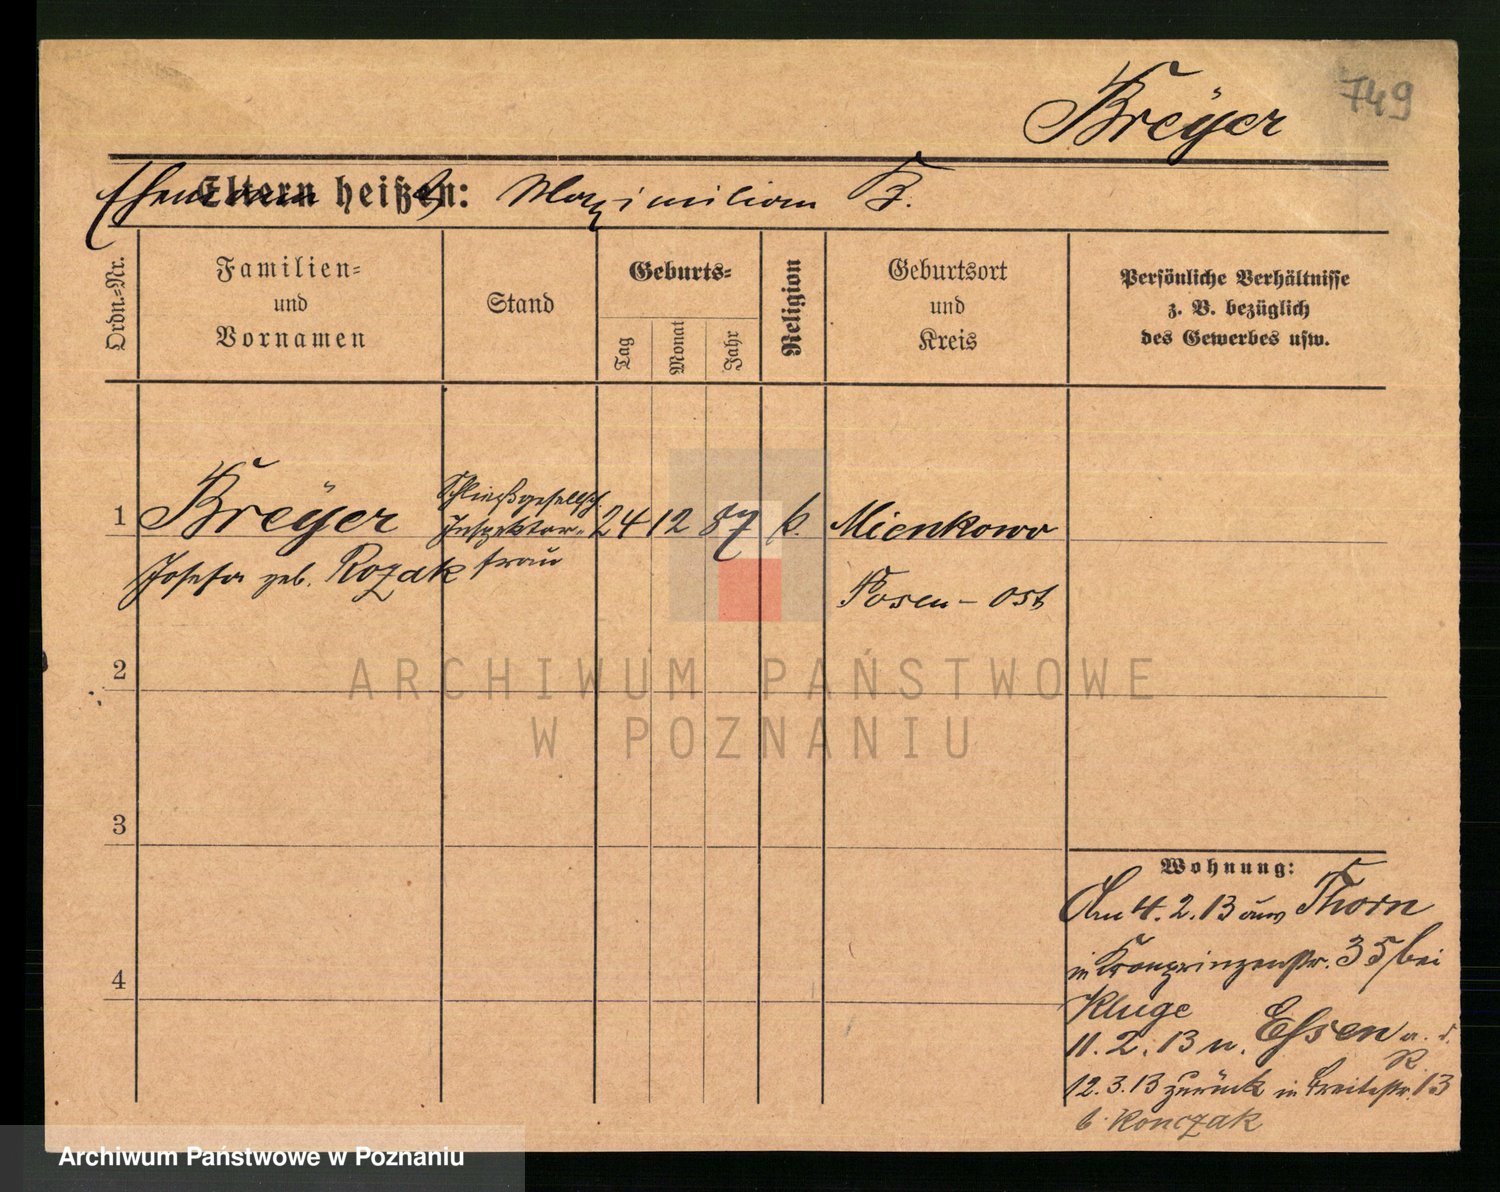 749
Breÿer
Eltern heißen: Ehemann Maximilian B.
Ordn.-Nr.
Familien-
und
Vornamen
Stand
Geburts-
Tag
Monat
Jahr
Religion
Geburtsort
und
Kreis
Persönliche Verhältnisse
z. B. bezüglich
des Gewerbes usw.
1
Breÿer
Josefa geb. Rozak
Schließgesellsch.
Inspektor-
frau
24
12
87
k.
Mienkowo
Posen - Ost
2
3
4
ARCHIWUM PAŃSTWOWE
W POZNANIU
Wohnung:
Am 4.2.13 aus Thorn
in Kronprinzenstr. 35 bei
Kluge
11.2.13 n. Essen a. d.
R.
12.3.13 zurück in Breitestr. 13
b. Konczak
Archiwum Państwowe w Poznaniu